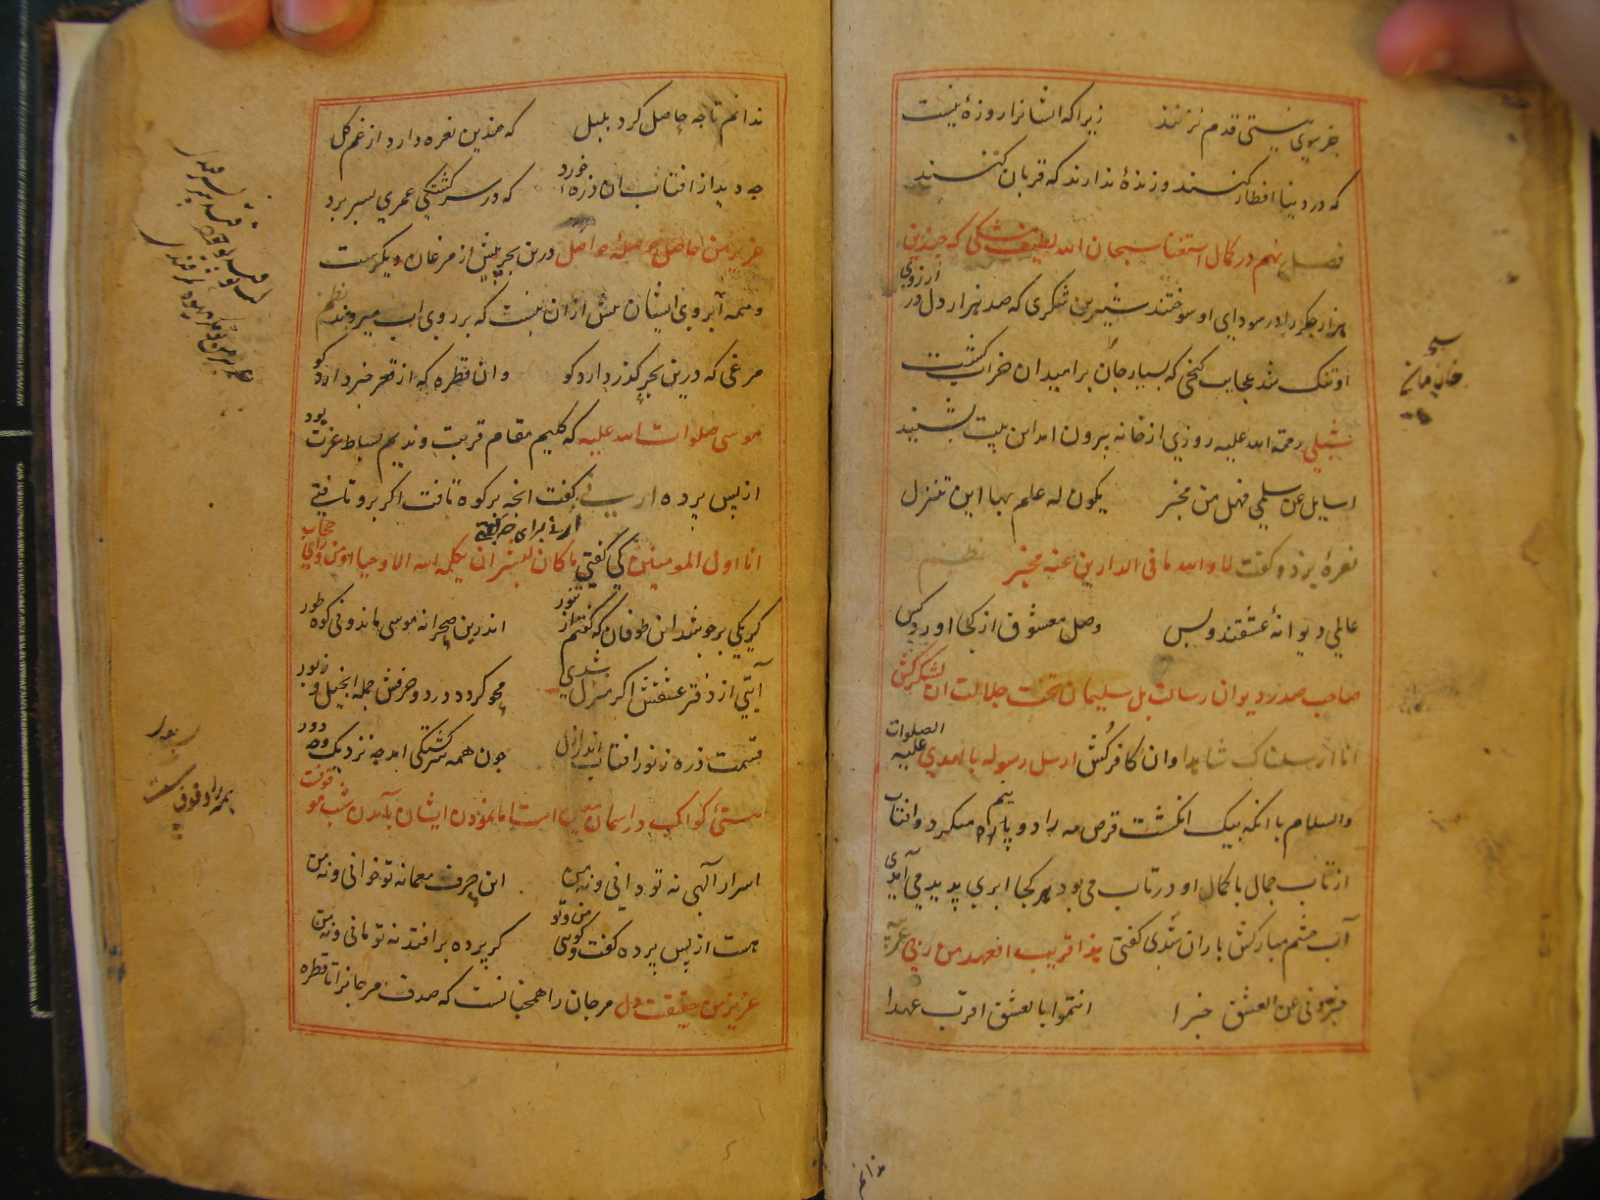 جز بسوی نیستی قدم نزنند زیرا که ایشانرا روزهٔ نیست
که در دنیا افطار کنند و زندهٔ ندارند که قربان کنند
فصل نهم در کمال استغنا سبحان الله لطیف مشکی که چندین
هزار جگر را در سودای او سوختند شیرین شکری که صد هزار دل در ارزوی
او تنک شد عجایب کنجی که بسیار جان برامید ان خراب کشت
شبلی رحمة الله علیه روزی از خانه بیرون امد این بیت بشنید
اسایل عن سلمی فهل من مخبر یکون له علم بها این تنزل
نعرهٔ بزد و کفت لا والله ما فی الدارین عنه مخبر نظم
عالمی دیوانهٔ عشقند و بس وصل معشوق از کجا اورد کس
صاحب صدر دیوان رسالت بل سلیمان تخت جلالت ان لشکرکش
انا ارسلناک شاهدا وان کافرکش ارسل رسوله بالهدی علیه الصلوات
والسلام با انکه بیک انکشت قرص مه را دو نیم میکرد وافتاب
از تاب جمال با کمال او در تاب می بود هر کجا ابری پدید می آمدی
آب چشم مبارکش باران شدی کفتی هذا قریب العهد من ربی
خبرونی عن العشق خبرا انتموا بالعشق اقرب عهدا
ندانم
ندانم تا چه حاصل کرد بلبل که چندین نعره دارد از غم کل
چه دید از افتاب ان ذره خورد که در سرکشتکی عمری بسر برد
عزیز من حاصل حوصله حواصل درین بحر بیش از مرغان دیکرست
و همه آبروی ایشان بیش ازان نیست که بر روی اب میروند نظم
مرغی که درین بحر کذر دارد کو وان قطره که از قعر خبر دارد کو
موسی صلوات الله علیه که کلیم مقام قربت و ندیم بساط عزت بود
از پس پرده ارنی کفت انچه بر کوه تافت اکر برو تافتی
انا اول المومنین کی کفتی ما کان لبشر ان یکلمه الله الا وحیا او من ورای حجاب
کریکی بر جوشد این طوفان که کفتم از تنور اندرین صحرا نه موسی ماند و نی کوه طور
آیتی از دفتر عشقش اکر منزل شدی محو کردد در دو حرفش جمله انجیل و زبور
قسمت ذره ز نور افتاب چون همه سرکشتکی امد چه نزدیک و چه دور
هستی کواکب در اسمان است اما نمودن ایشان بآمدن شب موقوفت
اسرار آلهی نه تو دانی و نه من این حرف معما نه تو خوانی و نه من
هست از پس پرده کفت وکوی من و تو کر پرده برافتد نه تو مانی و نه من
عزیز من حقیقت دل مرجان را همچنانست که صدف مرجانرا تا قطره